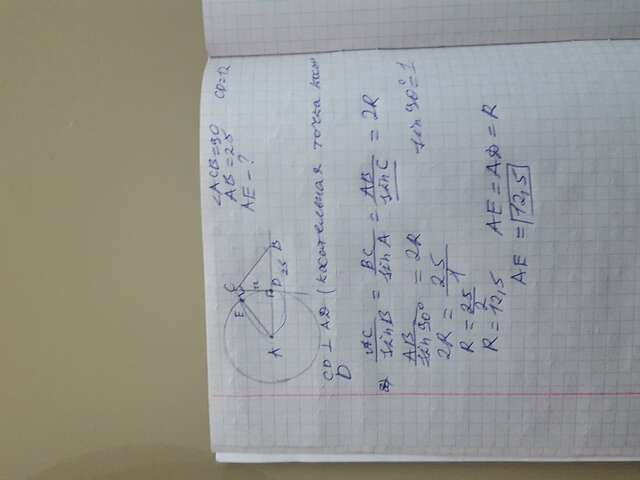 ∠ACB=90 CD=12
AB=25
AE-?
E C
12
A D B
25
CD ⊥ AD (касательная точка касат
D
AC/sinB = BC/sinA = AB/sinC = 2R
AB/sin90° = 2R sin90°=1
2R = 25/1
R = 25/2
R=12,5 AE=AD=R
AE = 12,5